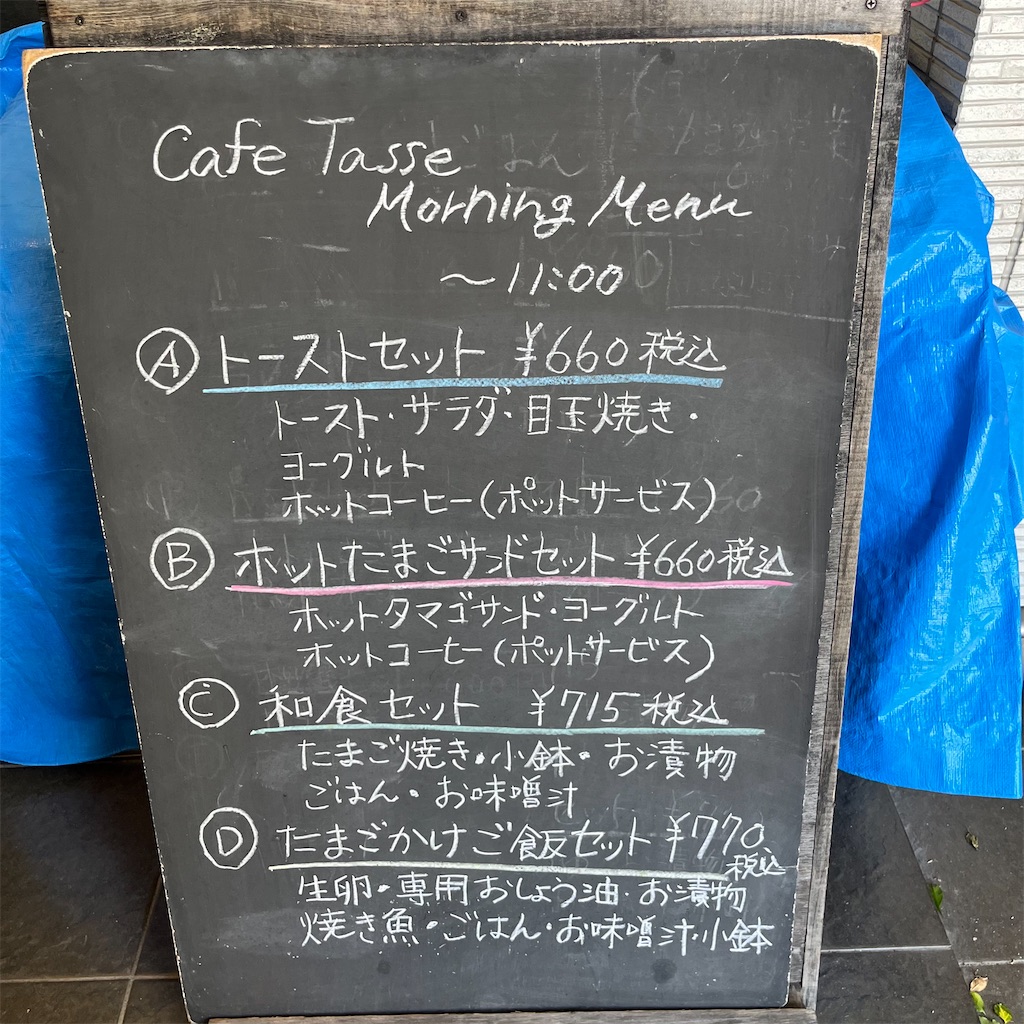 Cafe Tasse
Morning Menu
～11:00
Ⓐ トーストセット ¥660 税込
トースト・サラダ・目玉焼き・
ヨーグルト
ホットコーヒー(ポットサービス)
Ⓑ ホットたまごサンドセット ¥660 税込
ホットタマゴサンド・ヨーグルト
ホットコーヒー(ポットサービス)
Ⓒ 和食セット ¥715 税込
たまご焼き・小鉢・お漬物
ごはん・お味噌汁
Ⓓ たまごかけご飯セット ¥770
税込
生卵・専用おしょう油・お漬物
焼き魚・ごはん・お味噌汁・小鉢